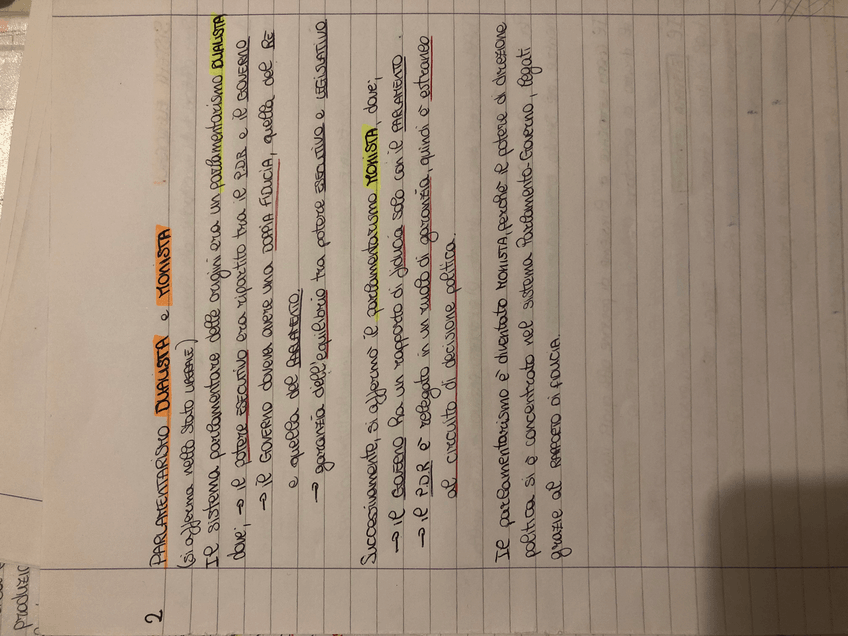 2
PARLAMENTARISMO DUALISTA e MONISTA
(si afferma nello Stato LIBERALE)
Il sistema parlamentare delle origini era un parlamentarismo DUALISTA
dove; → il potere ESECUTIVO era ripartito tra il P.D.R e il GOVERNO
→ il GOVERNO doveva avere una DOPPIA FIDUCIA, quella del RE
e quella del PARLAMENTO.
→ garanzia dell'equilibrio tra potere ESECUTIVO e LEGISLATIVO
Successivamente, si affermò il parlamentarismo MONISTA, dove;
→ il GOVERNO ha un rapporto di fiducia solo con il PARLAMENTO.
→ il P.D.R è relegato in un ruolo di garanzia, quindi è estraneo
al circuito di decisione politica.
Il parlamentarismo è diventato MONISTA, perchè il potere di direzione
politica si è concentrato nel sistema Parlamento-Governo, legati
grazie al RAPPORTO di FIDUCIA.
produzio